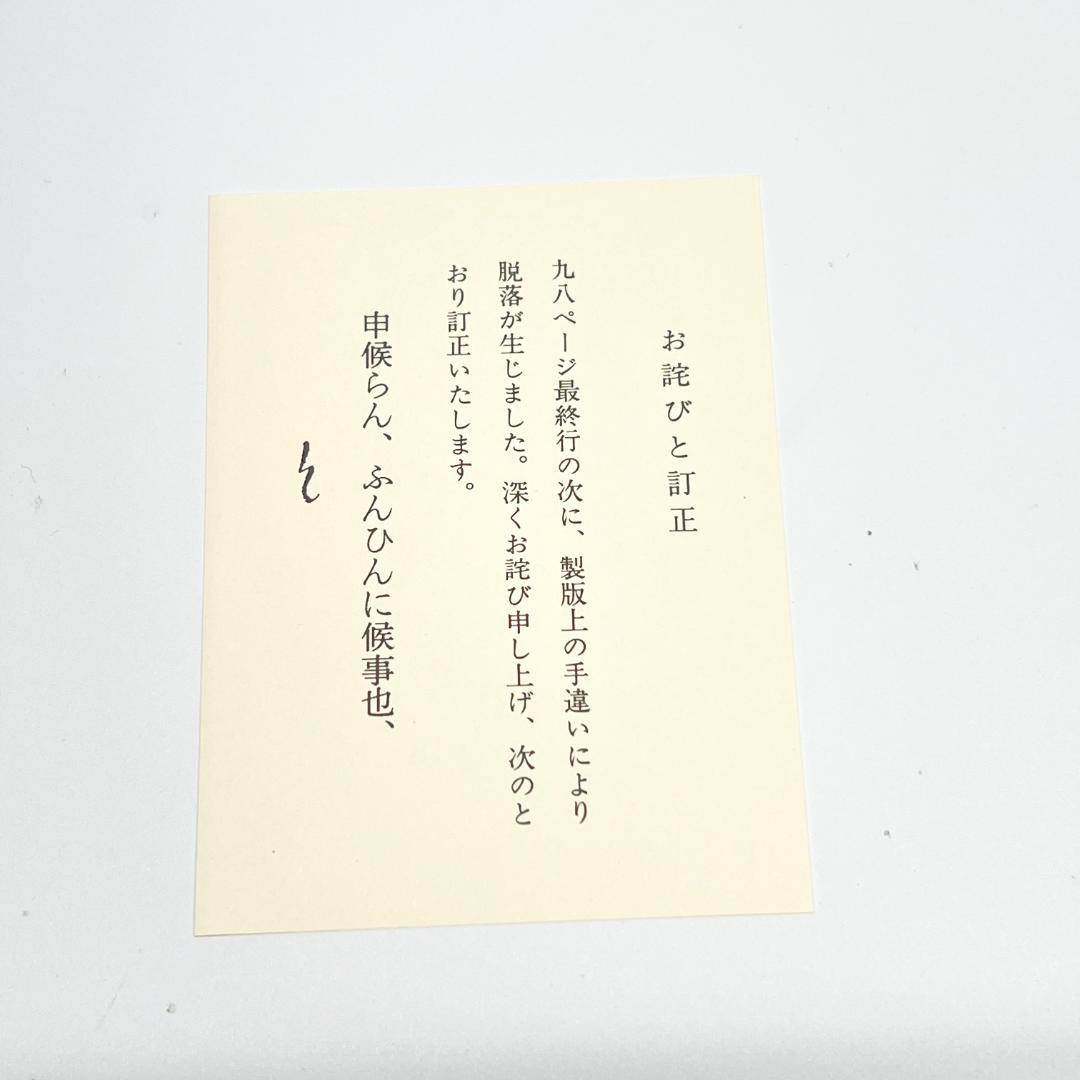 お詫びと訂正
九八ページ最終行の次に、製版上の手違いにより
脱落が生じました。深くお詫び申し上げ、次のと
おり訂正いたします。
申候らん、ふんひんに候事也、